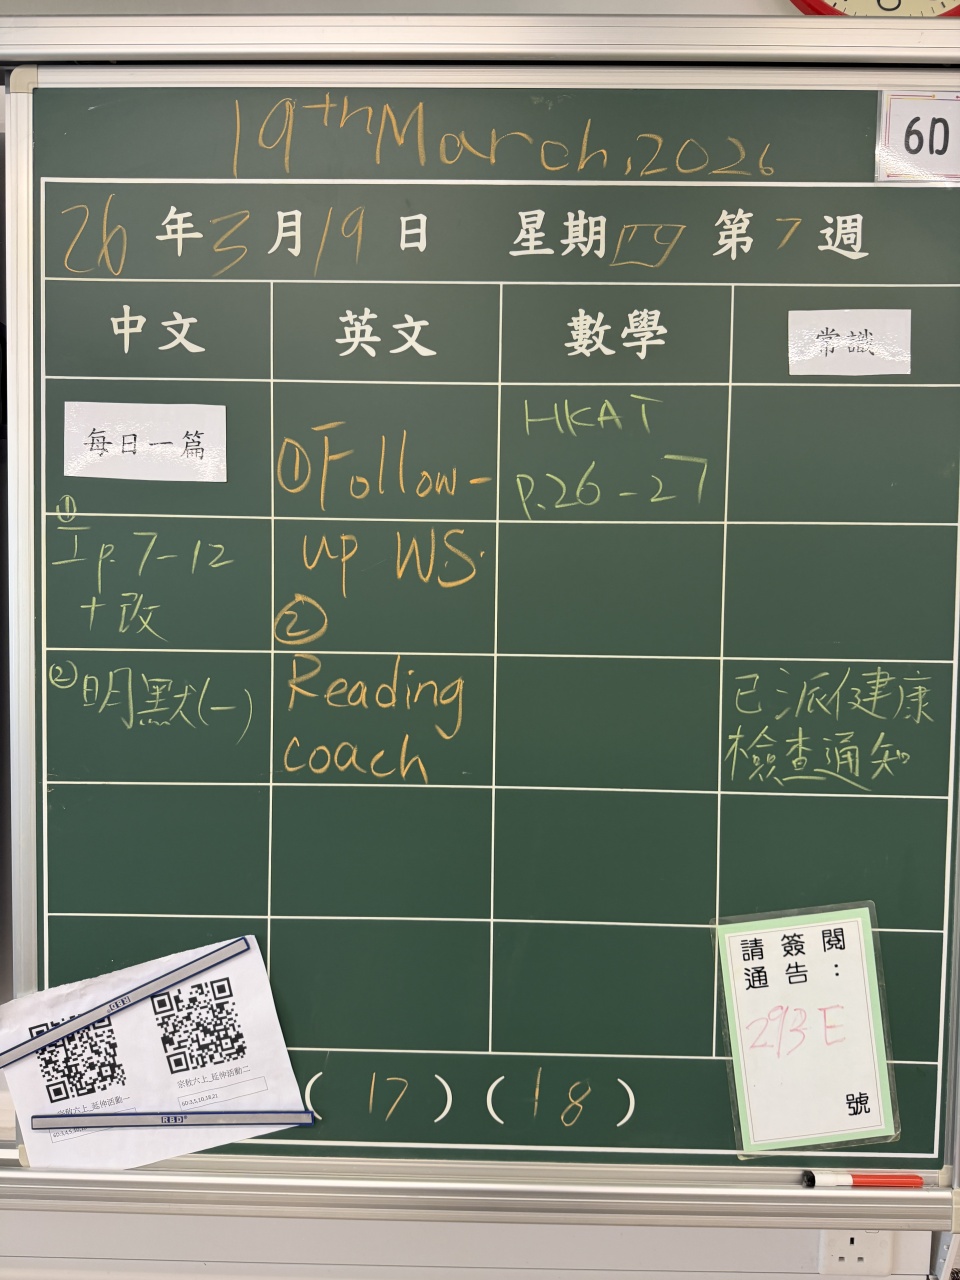 19th March, 2026
6D
26年3月19日 星期四 第7週
中文 英文 數學 常識
每日一篇
①
工p.7-12
+改
②明默(一)
①Follow-
up WS.
②
Reading
coach
HKAT
p.26-27
已派健康
檢查通知
請簽閱
通告：
293E
號
宗教六上_延伸活動一
宗教六上_延伸活動二
6D:3,5,10,18,21
RBD
RBD
(17)(18)